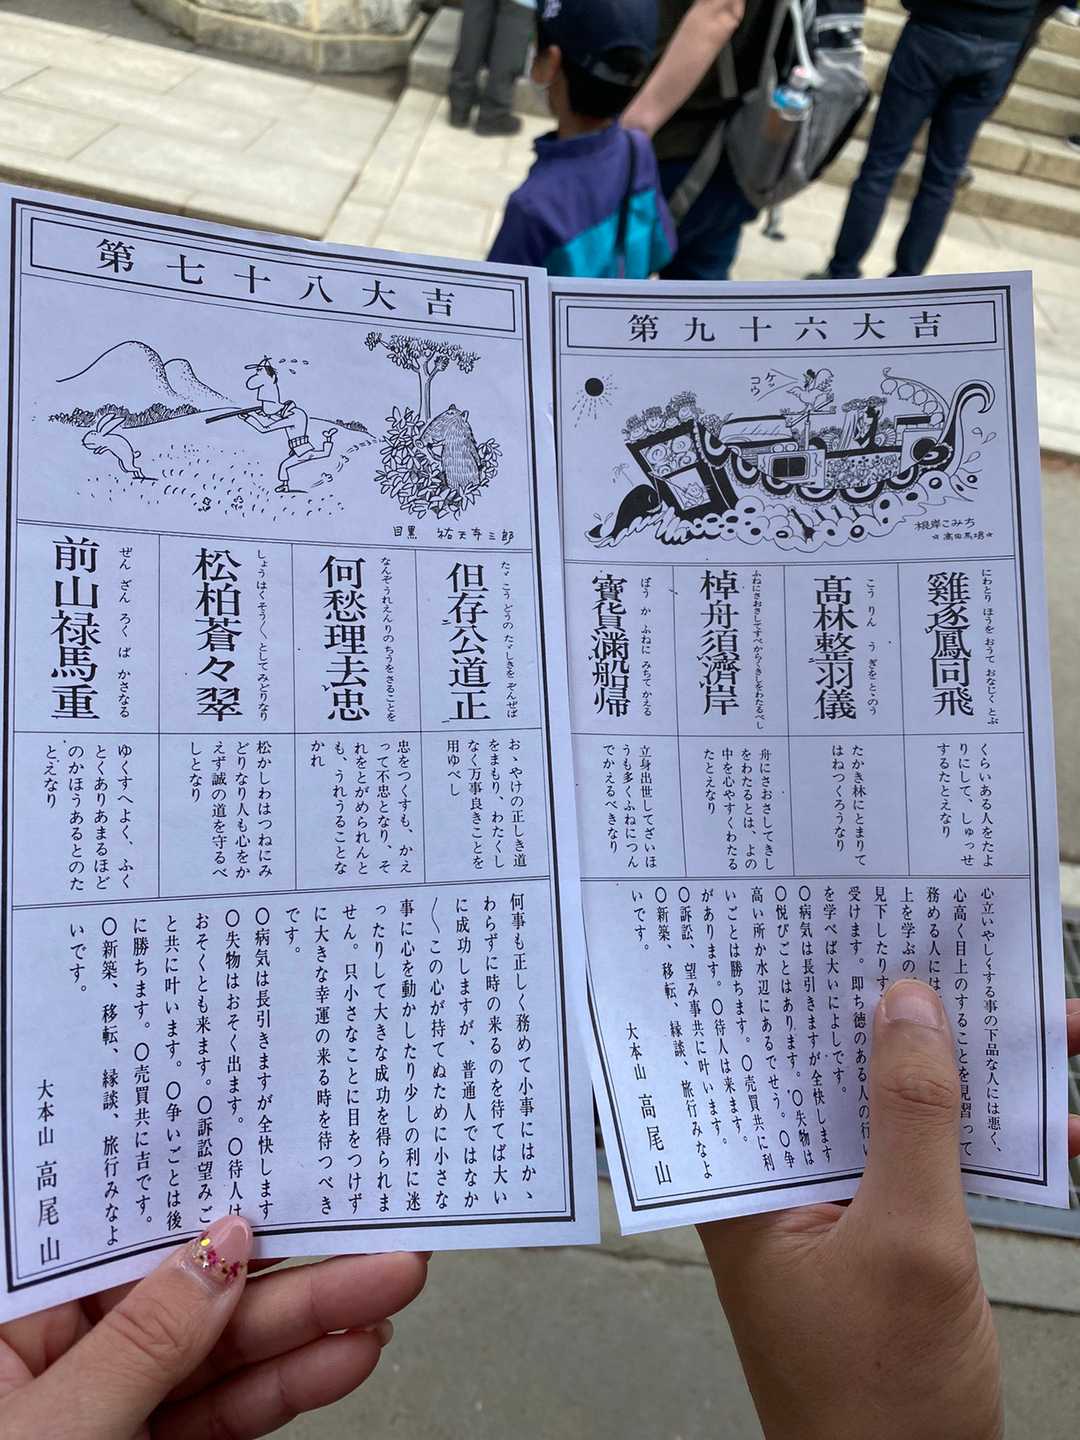 第七十八大吉
目黒 祐天寺三郎
たゞこうどうのたゞしきをぞんぜば
但存公道正
なんぞうれえんりのちうをさることを
何愁理去忠
しょうはくそう〱としてみどりなり
松柏蒼々翠
ぜんざんろくばかさなる
前山禄馬重
おゝやけの正しき道
をまもり、わたくし
なく万事良きことを
用ゆべし
忠をつくすも、かえ
って不忠となり、そ
れをとがめられんと
も、うれうることな
かれ
松かしわはつねにみ
どりなり人も心をか
えず誠の道を守るべ
しとなり
ゆくすへよく、ふく
とくありあまるほど
のかほうあるとのた
とえなり
何事も正しく務めて小事にはかゝ
わらずに時の来るのを待てば大い
に成功しますが、普通人ではなか
〱この心が持てぬために小さな
事に心を動かしたり少しの利に迷
ったりして大きな成功を得られま
せん。只小さなことに目をつけず
に大きな幸運の来る時を待つべき
です。
〇病気は長引きますが全快します
〇失物はおそく出ます。〇待人は
おそくとも来ます。〇訴訟望みご
と共に叶います。〇争いごとは後
に勝ちます。〇売買共に吉です。
〇新築、移転、縁談、旅行みなよ
いです。
大本山 高尾山
第九十六大吉
コケッ
コウ
根岸こみち
☆高田馬場☆
にわとりほうをおうておなじくとぶ
雞逐鳳同飛
こうりんうぎをとゝのう
高林整羽儀
ふねにさおさしてすべからくきしをわたるべし
棹舟須濟岸
ほうかふねにみちてかえる
寶貨滿船帰
くらいある人をたよ
りにして、しゅっせ
するたとえなり
たかき林にとまりて
はねつくろうなり
舟にさおさしてきし
をわたるとは、よの
中を心やすくわたる
たとえなり
立身出世してざいほ
うも多くふねにつん
でかえるべきなり
心立いやしくする事の下品な人には悪く、
心高く目上のすることを見習って
務める人には
上を学ぶの
見下したりす
受けます。即ち徳のある人の行い
を学べば大いによしです。
〇病気は長引きますが全快します
〇悦びごとはあります。〇失物は
高い所か水辺にあるでせう。〇争
いごとは勝ちます。〇売買共に利
があります。〇待人は来ます。
〇訴訟、望み事共に叶います。
〇新築、移転、縁談、旅行みなよ
いです。
大本山 高尾山